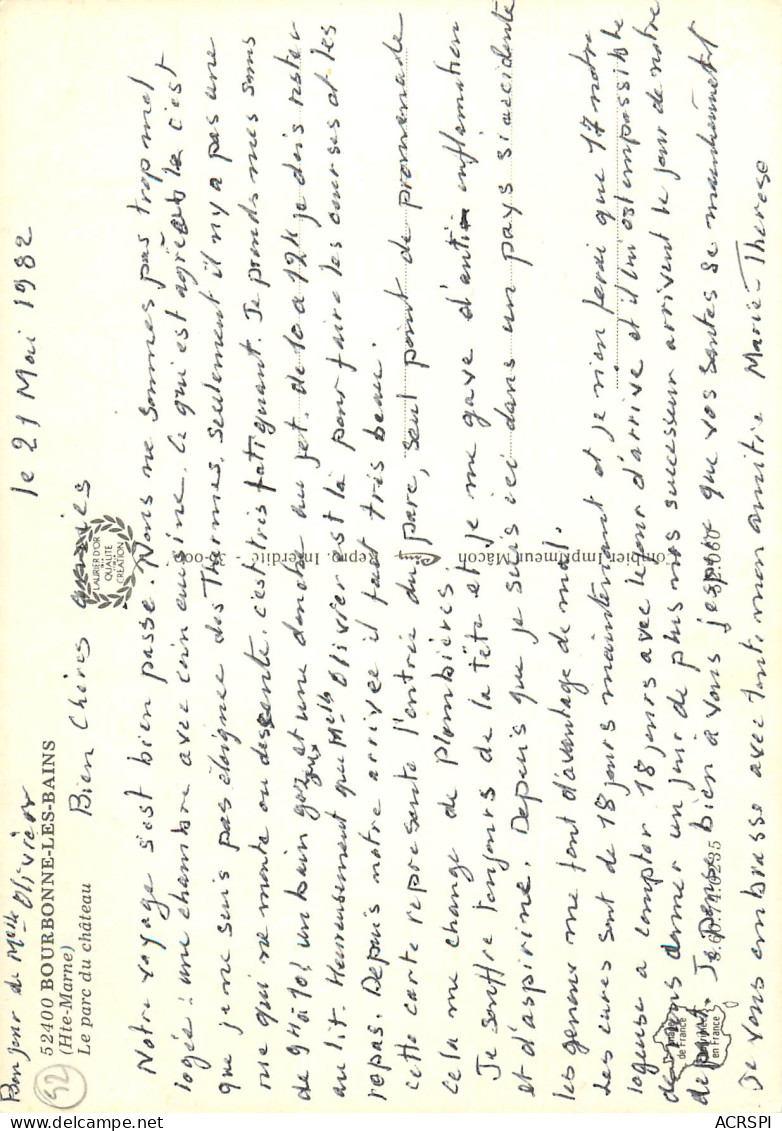 Bonjour de Melle Olivier
le 21 Mai 1982
52400 BOURBONNE-LES-BAINS
(Hte-Marne)
Le parc du château
52
Bien Chères amies
LAURIER D'OR
QUALITE
CREATION
Notre voyage s'est bien passe. Nous ne sommes pas trop mal
logée : une chambre avec coin cuisine. Ce qui est agréable c'est
que je ne suis pas éloignée des Thermes, seulement il n'y a pas une
rue qui ne monte ou descente, c'est très fatiguant. Je prends mes soins
de 9h à 10h un bain gazeux et une douche au jet. de 10 a 12h je dois rester
au lit. Heureusement que Melle Olivier est là pour faire les courses et les
repas. Depuis notre arrivée il fait très beau.
cette carte représente l'entrée du parc, seul point de promenade
Cela me change de Plombières.
Je souffre toujours de la Tête et je me gave d'anti inflamation
et d'aspirine. Depuis que je suis ici dans un pays si accidenté
les genoux me font d'avantage de mal.
Les cures sont de 18 jours maintenant et je n'en ferai que 17 notre
logeuse a compter 18 jours avec le jour d'arrive et il lui est impossible
de nous donner un jour de plus nos successeur arrivent le jour de notre
départ. Je pense bien à vous j'espère que vos santés se maintiennent
Je vous embrasse avec toute mon amitié Marie-Thérèse
Combier Imprimeur Mâcon
Repro. Interdite
de France
en France
ACRSPI